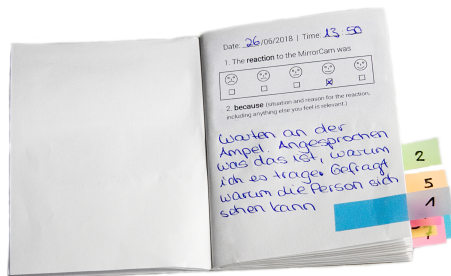 Date: 26/05/2018 | Time: 13 50
1. The reaction to the MirrorCam was
2. because (situation and reason for the reaction,
including anything else you feel is relevant.)
Warten an der
Ampel. Angesprochen
was das ist, warum
ich es trage. Gefragt
warum die Person sich
sehen kann
2
5
1